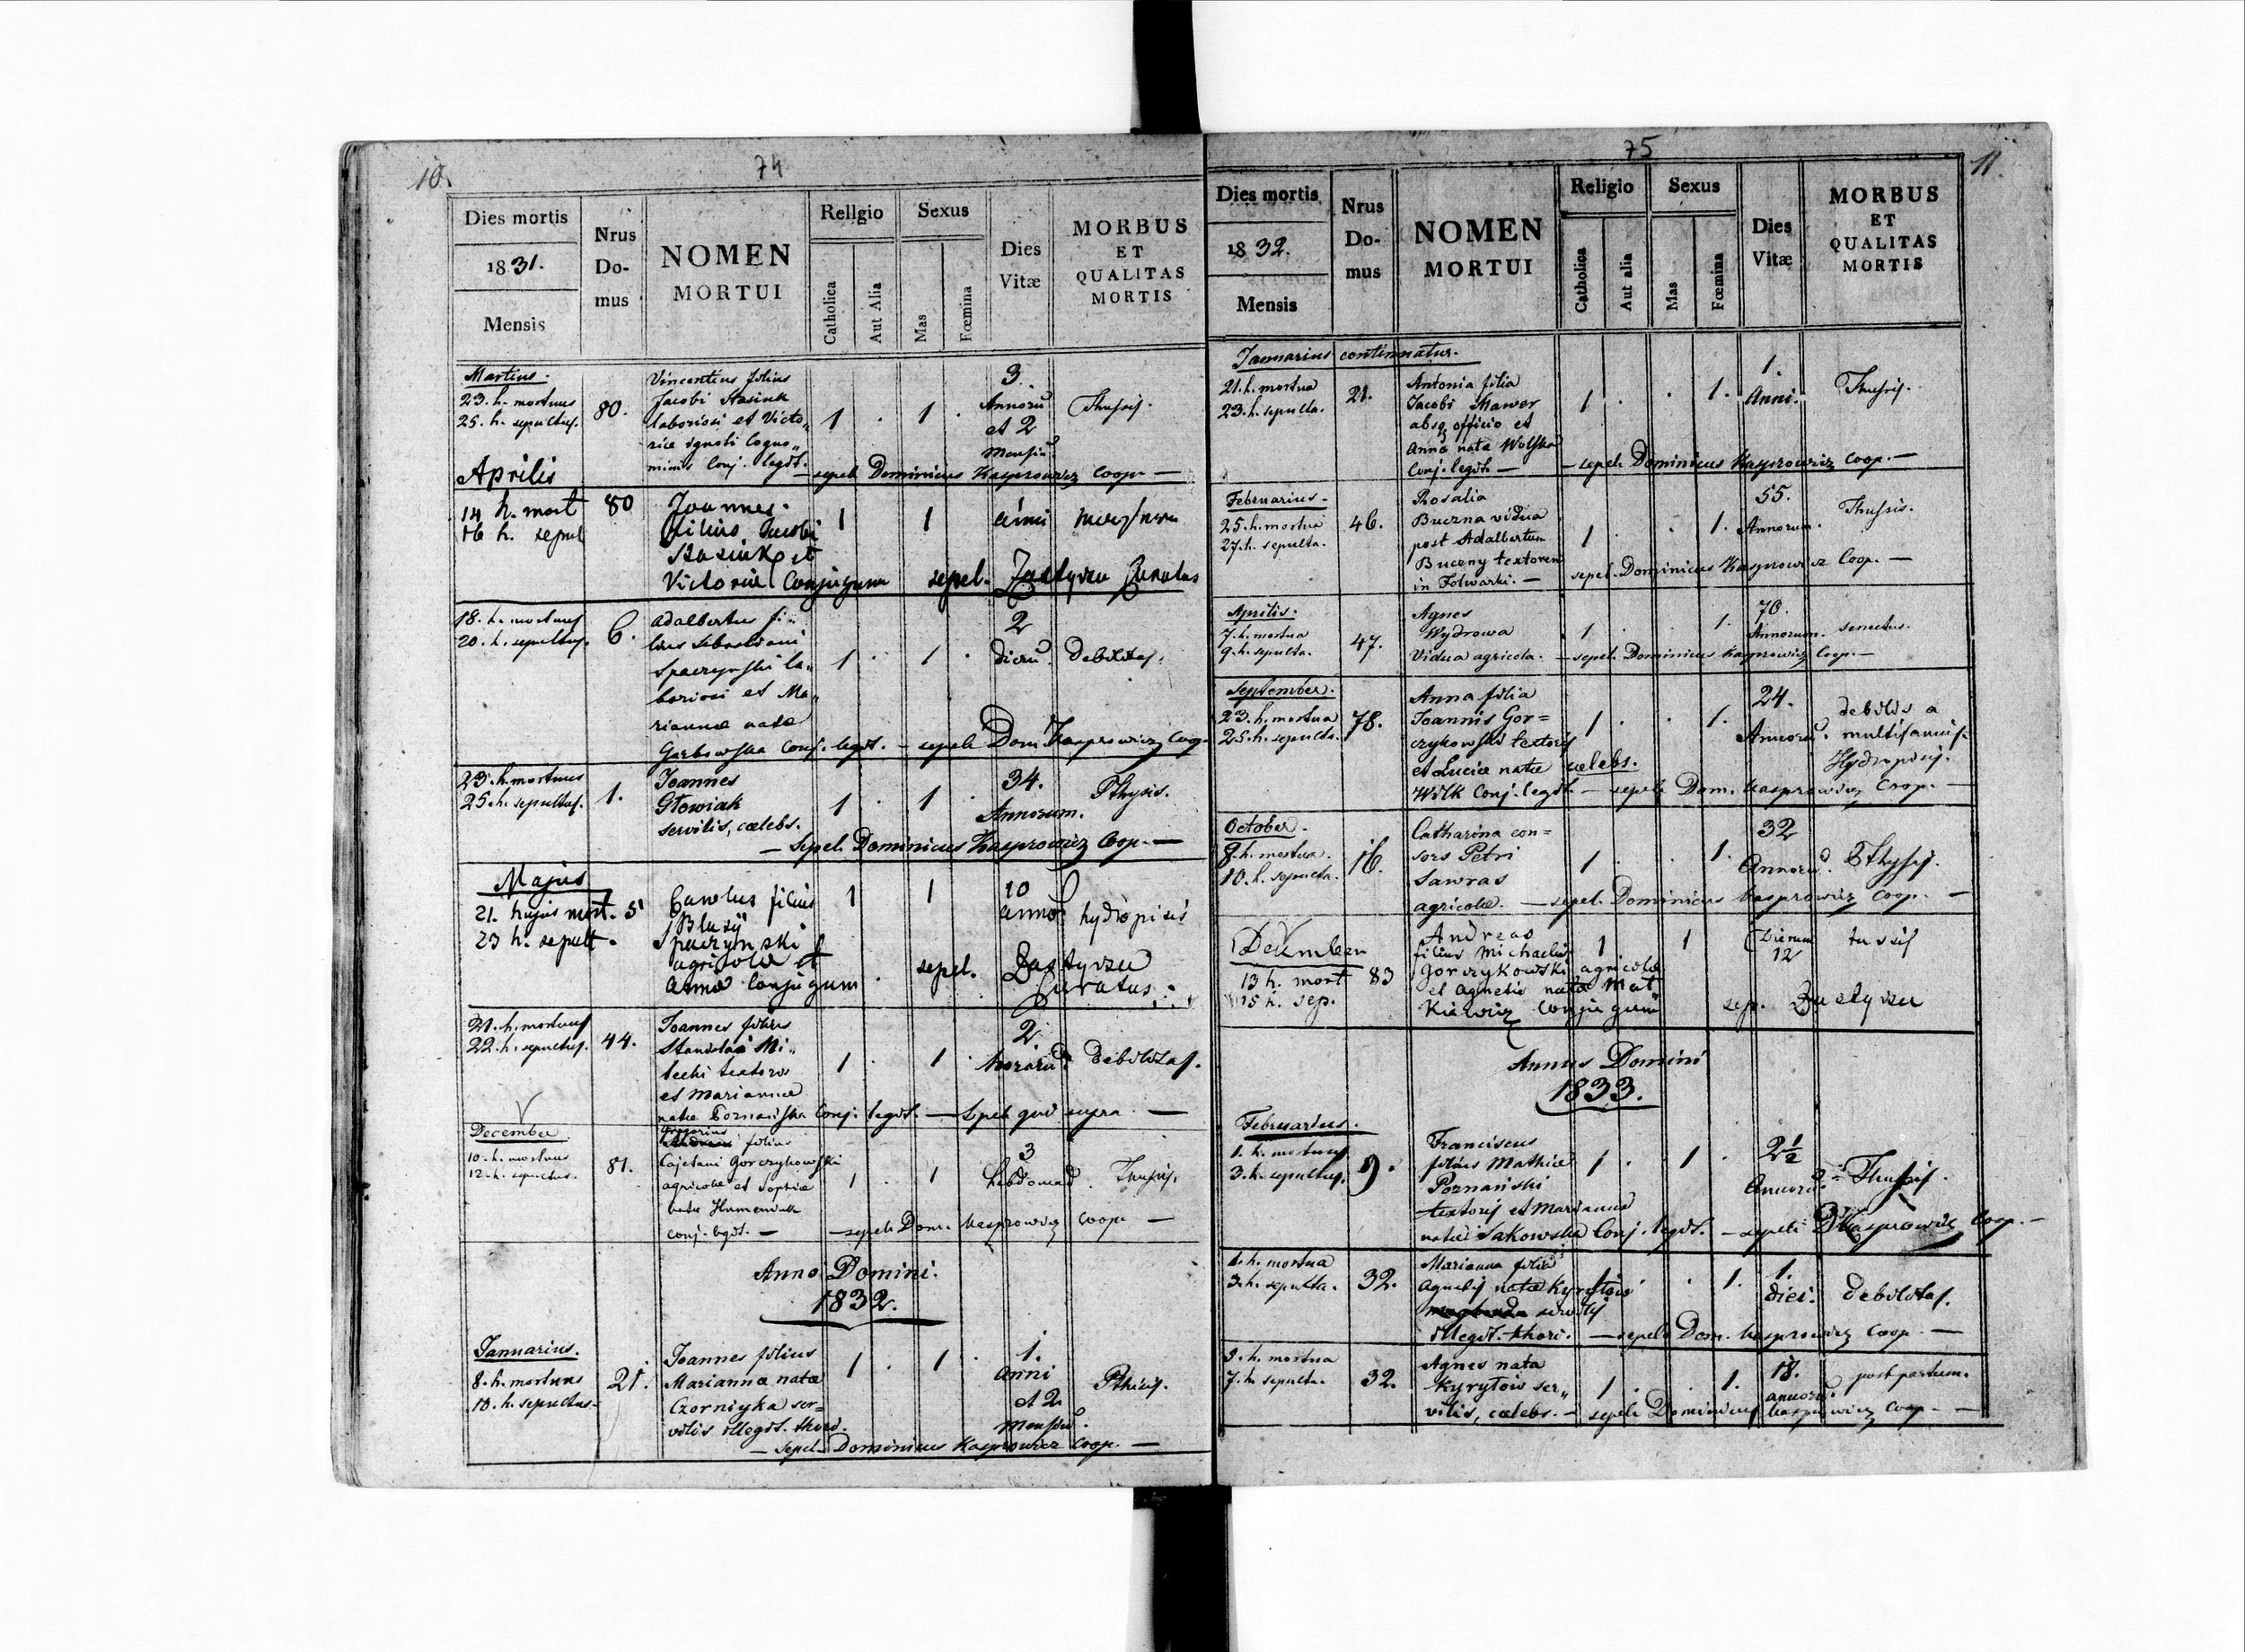 10.
74
Dies mortis
1831.
Mensis
Nrus
Do-
mus
NOMEN
MORTUI
Rellgio
Catholica
Aut Alia
Sexus
Mas
Fœmina
Dies
Vitæ
MORBUS
ET
QUALITAS
MORTIS
Martius.
23. h. mortuus
25. h. sepultus.
80.
Vincentius filius
Jacobi Stasiuk
laboriosi et Victo„
riæ ignoti Cogno„
minis Conj. legit.
1 . 1 .
3.
Annorū
et 2
Mensiū
Thusis.
— sepel. Dominicus Kasprowicz Coop. —
Aprilis
14 h. mort
16 h. sepul
80
Joannes
filius Jacobi
Stasiuk et
Victoriæ Conjugum
1 1
anni
sepel. Zastyrzu Curatus
18. h. mortuus
20. h. sepultus.
6.
Adalbertus fi„
lius Sebastiani
Spaczynski la„
boriosi et Ma„
riannæ natæ
Garbowska Conj. legit. — sepeli Dom. Kasprowicz Coop.
1 . 1 .
2
dierū.
debilitas.
23. h. mortuus
25. h. sepultus.
1.
Joannes
Głowiak
servilis, cælebs.
1 . 1 .
34.
Annorum.
Pthysis.
— Sepeli Dominicus Kasprowicz Coop. —
Majus
21. hujus mort.
23 h. sepult.
5
Carolus filius
Blasÿ
Spaczynski
agricolæ et
Annæ Conjugum
1 1
10
anno
hydropisis
sepel. Zastyrzu
Curatus
21. h. mortuus
22. h. sepultus.
44.
Joannes filius
Stanislai Mi„
lecki textoris
et Mariannæ
natæ Poznańska Conj. legit. — Sepeli qui supra. —
1 . 1 .
2.
horarū.
debilitas.
December
10. h. mortuus
12. h. sepultus.
81.
Gregorius
filius
Cajetani Gorczykowski
agricolæ et Sophiæ
natæ Humeniuk
conj. legit. —
1 . 1
3
hebdomad.
Thusis.
— sepeli Dom. Kasprowicz Coop. —
Anno Domini.
1832.
Januarius.
8. h. mortuus
10. h. sepultus.
21.
Joannes filius
Mariannæ natæ
Czorniyka ser=
vilis illegit. thori.
1 . 1 .
1.
Anni
et 2
Mensiū.
Pthisis.
— Sepel. Dominicus Kasprowicz Coop. —
75
11.
Dies mortis
1832.
Mensis
Nrus
Do-
mus
NOMEN
MORTUI
Religio
Catholica
Aut alia
Sexus
Mas
Fœmina
Dies
Vitæ
MORBUS
ET
QUALITAS
MORTIS
Januarius continuatur.
21. h. mortua
23. h. sepulta.
21.
Antonia filia
Jacobi Mawer
absq officio et
Anna nata Wolska
Conj. legit. —
1 . . 1.
1.
Anni.
Thusis.
— sepeli Dominicus Kasprowicz Coop. —
Februarius.
25. h. mortua
27. h. sepulta.
46.
Rosalia
Buczna vidua
post Adalbertum
Buczny textorem
in Folwarki. —
1 . . 1.
55.
Annorum.
Thusis.
sepel. Dominicus Kasprowicz Coop. —
Aprilis.
7. h. mortua
9. h. sepulta.
47.
Agnes
Wydrowa
Vidua agricola.
1 . . 1.
70.
Annorum.
senectus.
— sepel. Dominicus Kasprowicz Coop. —
September.
23. h. mortua
25. h. sepulta.
78.
Anna filia
Joannis Gor=
czykowski textoris
et Luciæ natæ cælebs.
Wilk Conj. legit. — sepeli Dom. Kasprowicz Coop. —
1 . . 1.
24.
Annorū.
debilis a
Hydropisis.
October.
8. h. mortua.
10. h. sepulta.
16.
Catharina con=
sors Petri
Sawras
agricolæ.
1 . . 1.
32
Annorū.
Pthysis.
— sepel. Dominicus Kasprowicz Coop. —
December
13 h. mort
15 h. sep.
83
Andreas
filius Michaelis
Gorczykowski agricolæ
et Agnetis natæ Mat
kiewicz Conjugum
1 1
Dierum
12
tussis
sep. Zastyrzu
Annus Domini
1833.
Februarius.
1. h. mortuus
3. h. sepultus.
9.
Franciscus
filius Mathiæ
Poznański
textoris et Mariannæ
natæ Sakowska Conj. legit. — sepeli DKasprowicz Coop. —
1 . 1 .
2½
Annorū.
Thusis.
1. h. mortua
3. h. sepulta.
32.
Marianna filia
Agnetis natæ Kyryłoiv
servilis
illegit. thori. — sepeli Dom. Kasprowicz Coop. —
1 . . 1.
1.
diei.
debilitas.
5. h. mortua
7. h. sepulta.
32.
Agnes nata
Kyryłoiv ser„
vilis, cælebs. — sepeli Dominicus Kasprowicz Coop. —
1 . . 1.
18.
annorū.
post partum.